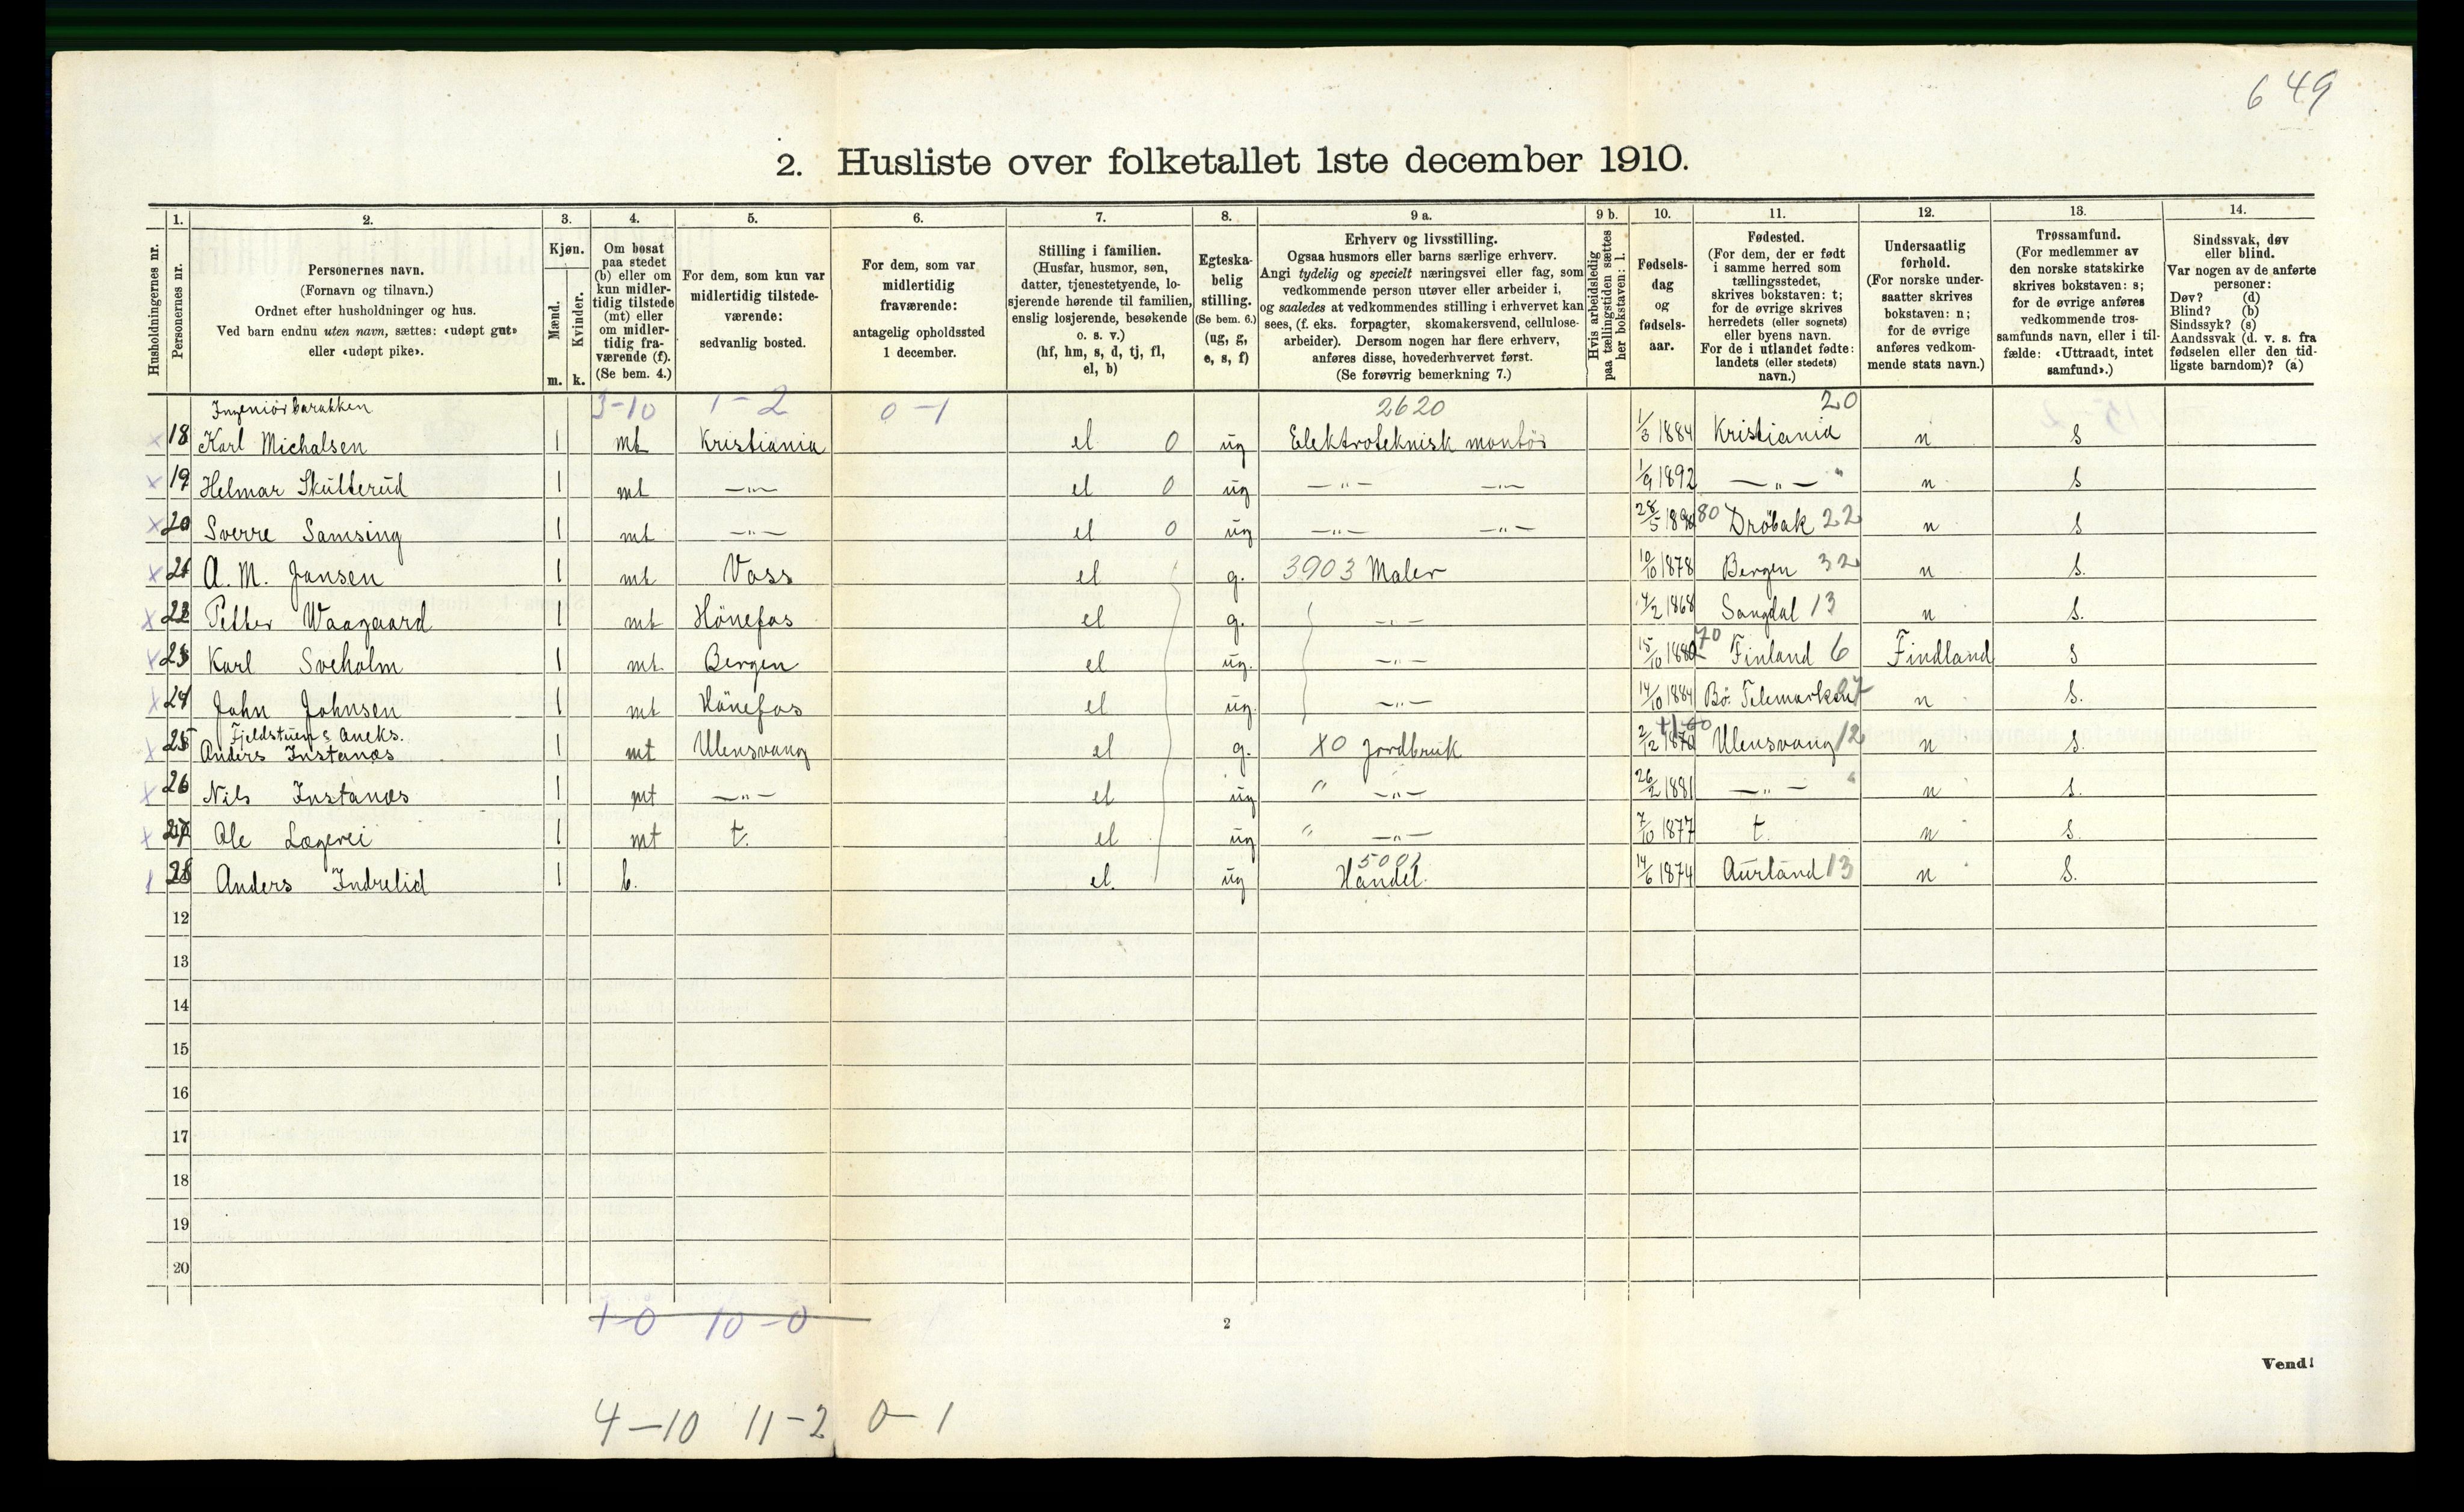 649
2. Husliste over folketallet 1ste december 1910.
1. 2. 3. 4. 5. 6. 7. 8. 9 a. 9 b. 10. 11. 12. 13. 14.
Husholdningernes nr.
Personernes nr.
Personernes navn.
(Fornavn og tilnavn.)
Ordnet efter husholdninger og hus.
Ved barn endnu uten navn, sættes: «udøpt gut»
eller «udøpt pike».
Kjøn.
Mænd.
Kvinder.
m. k.
Om bosat
paa stedet
(b) eller om
kun midler-
tidig tilstede
(mt) eller
om midler-
tidig fra-
værende (f).
(Se bem. 4.)
For dem, som kun var
midlertidig tilstede-
værende:
sedvanlig bosted.
For dem, som var
midlertidig
fraværende:
antagelig opholdssted
1 december.
Stilling i familien.
(Husfar, husmor, søn,
datter, tjenestetyende, lo-
sjerende hørende til familien,
enslig losjerende, besøkende
o. s. v.)
(hf, hm, s, d, tj, fl,
el, b)
Egteska-
belig
stilling.
(Se bem. 6.)
(ug, g,
e, s, f)
Erhverv og livsstilling.
Ogsaa husmors eller barns særlige erhverv.
Angi tydelig og specielt næringsvei eller fag, som
vedkommende person utøver eller arbeider i,
og saaledes at vedkommendes stilling i erhvervet kan
sees, (f. eks. forpagter, skomakersvend, cellulose-
arbeider). Dersom nogen har flere erhverv,
anføres disse, hovederhvervet først.
(Se forøvrig bemerkning 7.)
Hvis arbeidsledig
paa tællingstiden sættes
her bokstaven: l.
Fødsels-
dag
og
fødsels-
aar.
Fødested.
(For dem, der er født
i samme herred som
tællingsstedet,
skrives bokstaven: t;
for de øvrige skrives
herredets (eller sognets)
eller byens navn.
For de i utlandet fødte:
landets (eller stedets)
navn.)
Undersaatlig
forhold.
(For norske under-
saatter skrives
bokstaven: n;
for de øvrige
anføres vedkom-
mende stats navn.)
Trossamfund.
(For medlemmer av
den norske statskirke
skrives bokstaven: s;
for de øvrige anføres
vedkommende tros-
samfunds navn, eller i til-
fælde: «Uttraadt, intet
samfund».)
Sindssvak, døv
eller blind.
Var nogen av de anførte
personer:
Døv? (d)
Blind? (b)
Sindssyk? (s)
Aandssvak (d. v. s. fra
fødselen eller den tid-
ligste barndom)? (a)
Ingeniörbarakken 3-10 1-2 0-1 2620 20
x 18 Karl Michalsen 1 mt Kristiania el 0 ug Elektroteknisk montör 1/3 1884 Kristiania n s
x 19 Helmar Skutterud 1 mt —"— el 0 ug —"— —"— 1/9 1892 —"— " n s
x 20 Sverre Samsing 1 mt —"— el 0 ug —"— —"— 28/5 1890 Dröbak 22 n s
x 21 A. M. Jansen 1 mt Voss el g. 3903 Maler 10/10 1878 Bergen 32 n s.
x 22 Petter Waagaard 1 mt Hönefos el g. —"— 4/2 1868 Sangdal 13 n s.
x 23 Karl Sveholm 1 mt. Bergen el ug. —"— 15/10 1880 Finland 6 Findland s
x 24 John Johnsen 1 mt Hönefos el ug. —"— 14/10 1884 Bö. Telemarken n s.
Fjeldstuens Aneks.
x 25 Anders Instanæs 1 mt Ulensvang el g. X0 Jordbruk 2/12 1870 Ulensvang 12 n s.
x 26 Nils Instanæs 1 mt —"— el ug " —"— 26/2 1881 —"— " n s.
x 27 Ole Lægrei 1 mt t. el ug " —"— 7/10 1877 t. n s.
5001
1 28 Anders Indrelid 1 b. el. ug Handel. 14/6 1874 Aurland 13 n S.
12
13
14
15
16
17
18
19
20
1-0 10-0
2
Vend!
4-10 11-2 0-1